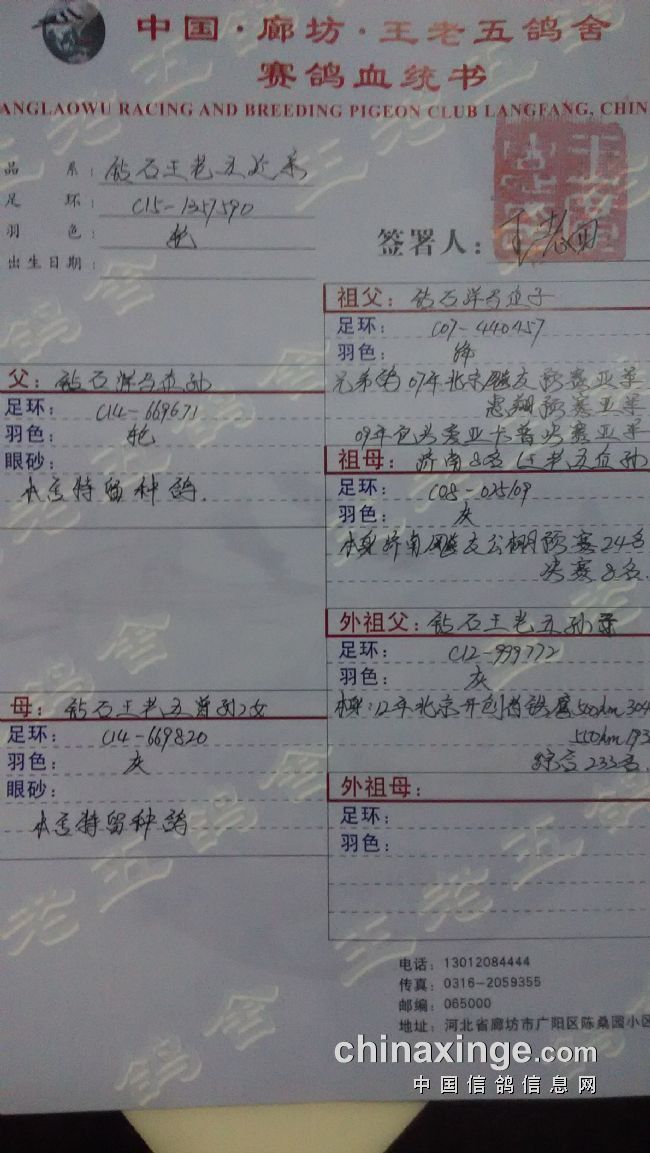 中国·廊坊·王老五鸽舍
赛鸽血统书
ANGLAOWU RACING AND BREEDING PIGEON CLUB LANGFANG, CHIN
品系: 钻石王老五近亲
足环: C15-1357590
羽色: 轮
出生日期:
签署人: 王老五
父: 钻石洋马直孙
足环: C14-669671
羽色: 轮
眼砂:
本舍特留种鸽.
母: 钻石王老五曾孙女
足环: C14-669820
羽色: 灰
眼砂:
本舍特留种鸽
祖父: 钻石洋马直子
足环: C07-440457
羽色: 绛
兄弟鸽07年北京 友预赛亚军
惠翔预赛亚军
09年包头 亚卡普决赛亚军
祖母: 济南8名 王老五直孙
足环: C08-025109
羽色: 灰
本身济南 友公棚预赛24名
决赛8名.
外祖父: 钻石王老五孙
足环: C12-999772
羽色: 灰
本身:12年北京开创者 赛500km304
550km193
综合233名.
外祖母:
足环:
羽色:
电话: 13012084444
传真: 0316-2059355
邮编: 065000
地址: 河北省廊坊市广阳区陈桑园小区
chinaxinge.com
中国信鸽信息网